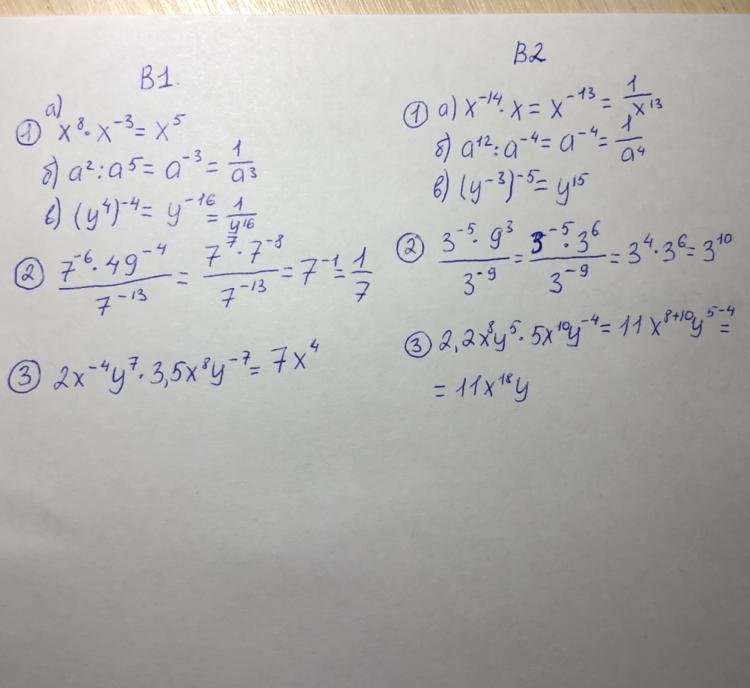 В1.
а)
① x⁸·x⁻³= x⁵
б) a²:a⁵= a⁻³= 1/a³
в) (y⁴)⁻⁴= y⁻¹⁶= 1/y¹⁶
② (7⁻⁶·49⁻⁴)/7⁻¹³ = (7⁷·7⁻⁸)/7⁻¹³ = 7⁻¹= 1/7
③ 2x⁻⁴y⁷·3,5x⁸y⁻⁷= 7x⁴
В2
① а) x⁻¹⁴·x= x⁻¹³= 1/x¹³
б) a¹²:a⁻⁴= a⁻⁴= 1/a⁴
в) (y⁻³)⁻⁵= y¹⁵
② (3⁻⁵·9³)/3⁻⁹ = (3⁻⁵·3⁶)/3⁻⁹ = 3⁴·3⁶= 3¹⁰
③ 2,2x⁸y⁵·5x¹⁰y⁻⁴= 11x⁸⁺¹⁰y⁵⁻⁴=
= 11x¹⁸y